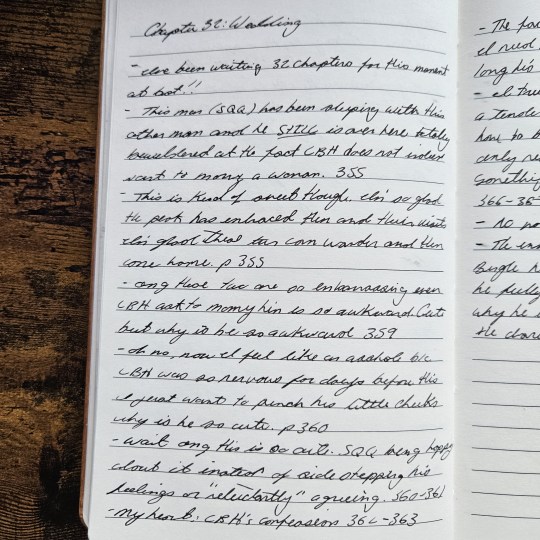 Chapter 32: Wedding
- I've been waiting 32 chapters for this moment
at last!!
- This man (SQQ) has been sleeping with this
other man and he STILL is over here totally
bewildered at the fact LBH does not indeed
want to marry a woman. 355
- This is kind of sweet though. I'm so glad
the peak has embraced them and their visits
I'm glad these two can wander and then
come home. p 355
- omg these two are so embarrassing even
LBH ask to marry him is so awkward. Cute
but why is he so awkward 359
- oh no, now I feel like an asshole b/c
LBH was so nervous for days before this
I just want to pinch his little cheeks
why is he so cute. p360
- wait omg this is so cute. SQQ being happy
about it instead of side stepping his
feelings or "reluctantly" agreeing. 360-361
- My heart. LBH's confession 362-363
- The
el
long his
- el
a
how to b
only
366-36
- no
- The
he fully
why he
the